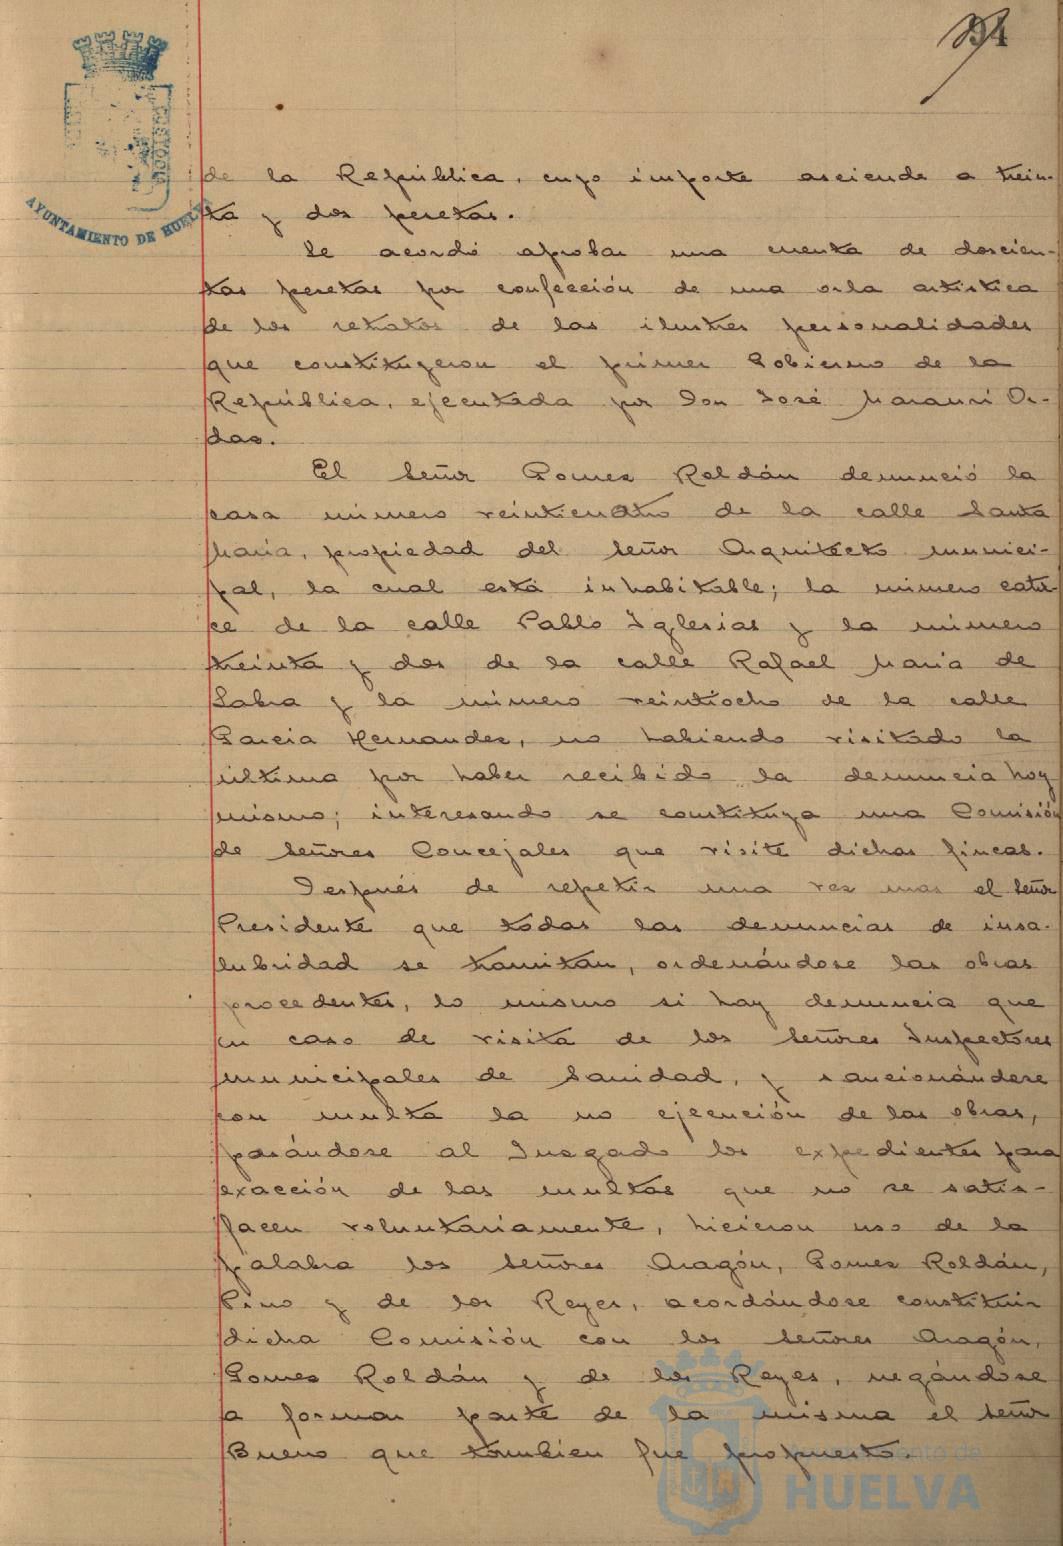 94
AYUNTAMIENTO DE HUELVA
de la República, cuyo importe asciende a trein-
ta y dos pesetas.
Se acordó aprobar una cuenta de doscien-
tas pesetas por confección de una orla artistica
de los retratos de las ilustres personalidades
que constituyeron el primer Gobierno de la
República, ejecutada por Don José
das.
El Señor Gomez Roldán denunció la
casa número veinticuatro de la calle Santa
Maria, propiedad del Señor Arquitecto munici-
pal, la cual está inhabitable; la número cator-
ce de la calle Pablo Iglesias y la número
treinta y dos de la calle Rafael Maria de
Labra y la número veintiocho de la calle
Garcia Hernandez, no habiendo visitado la
última por haber recibido la denuncia hoy
mismo; interesando se constituya una Comisión
de Señores Concejales que visite dichas fincas.
Después de repetir una vez mas el Señor
Presidente que todas las denuncias de insa-
lubridad se tramitan, ordenándose las obras
procedentes, lo mismo si hay denuncia que
en caso de visita de los Señores Inspectores
municipales de Sanidad, y sancionándose
con multa la no ejecución de las obras,
pasándose al Juzgado los expedientes para
exacción de las multas que no se satis-
facen voluntariamente, hicieron uso de la
palabra los Señores Aragón, Gomez Roldán,
Pino y de los Reyes, acordándose constituir
dicha Comisión con los Señores Aragón,
Gomez Roldán y de los Reyes, negándose
a formar parte de la misma el Señor
Bueno que tambien fue propuesto.
Ayuntamiento de
HUELVA